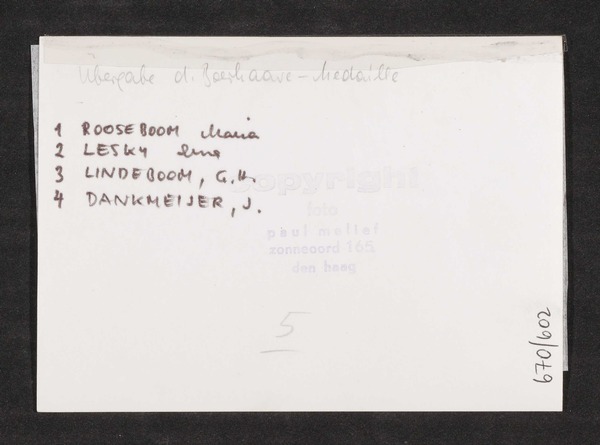 Übergabe d. Boerhaave-Medaille
1 ROOSEBOOM Maria
2 LESKY Erna
3 LINDEBOOM, G.A.
4 DANKMEIJER, J.
copyright
foto
paul mellef
zonneoord 165
den haag
5
670/602